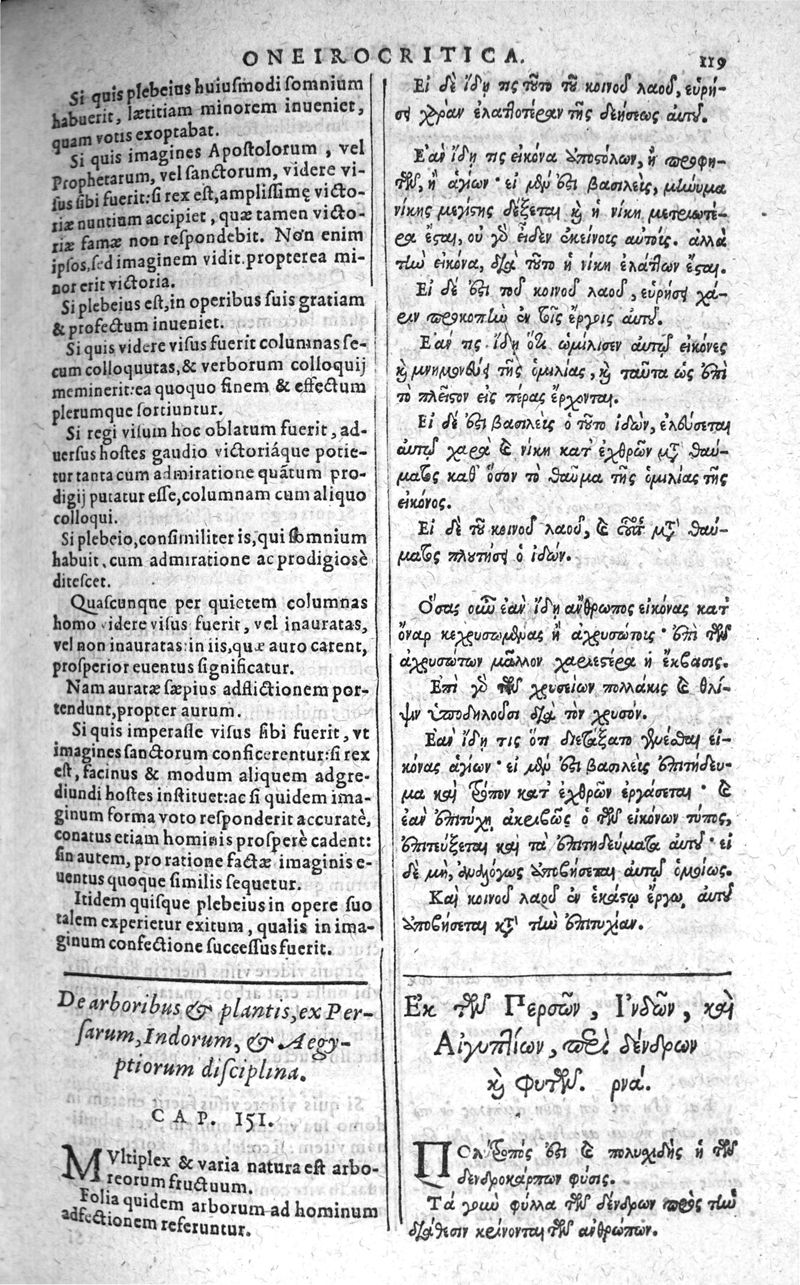 ONEIROCRITICA.
119
Si quis plebeius huiusmodi somnium
habuerit, lætitiam minorem inueniet,
quam votis exoptabat.
Si quis imagines Apostolorum, vel
Prophetarum, vel sanctorum, videre vi-
sus sibi fuerit: si rex est, amplissimę victo-
riæ nuntium accipiet, quæ tamen victo-
riæ famæ non respondebit. Non enim
ipsos, sed imaginem vidit. propterea mi-
nor erit victoria.
Si plebeius est, in operibus suis gratiam
& profectum inueniet.
Si quis videre visus fuerit columnas se-
cum colloquutas, & verborum colloquij
meminerit: ea quoquo finem & effectum
plerumque sortiuntur.
Si regi visum hoc oblatum fuerit, ad-
uersus hostes gaudio victoriáque potie-
tur tanta cum admiratione quãtum pro-
digij putatur esse, columnam cum aliquo
colloqui.
Si plebeio, consimiliter is, qui somnium
habuit, cum admiratione ac prodigiosè
ditescet.
Quascunque per quietem columnas
homo videre visus fuerit, vel inauratas,
vel non inauratas: in iis, quæ auro carent,
prosperior euentus significatur.
Nam auratæ sæpius adflictionem por-
tendunt, propter aurum.
Si quis imperasse visus sibi fuerit, vt
imagines sanctorum conficerentur: si rex
est, facinus & modum aliquem adgre-
diundi hostes instituet: ac si quidem ima-
ginum forma voto responderit accuratè,
conatus etiam hominis prosperè cadent:
sin autem, pro ratione factæ imaginis e-
uentus quoque similis sequetur.
Itidem quisque plebeius in opere suo
talem experietur exitum, qualis in ima-
ginum confectione successus fuerit.
De arboribus & plantis, ex Per-
sarum, Indorum, & Aegy-
ptiorum disciplina.
CAP. 151.
MVltiplex & varia natura est arbo-
reorum fructuum.
Folia quidem arborum ad hominum
adfectionem referuntur.
Εἰ δὲ ἴδῃ τις τοῦτο τοῦ κοινοῦ λαοῦ, εὑρή-
σει χαρὰν ἐλαττοτέραν τῆς δεήσεως αὐτοῦ.
Ἐὰν ἴδῃ τις εἰκόνα ἀποστόλων, ἢ προφη-
τῶν, ἢ ἁγίων· εἰ μὲν ἔστι βασιλεὺς, μήνυμα
νίκης μεγίστης δέξεται καὶ ἡ νίκη μετριωτέ-
ρα ἔσται, οὐ γὰρ εἶδεν ἐκείνους αὐτοὺς. ἀλλὰ
τὴν εἰκόνα, διὰ τοῦτο ἡ νίκη ἐλάττων ἔσται.
Εἰ δὲ ἔστι τοῦ κοινοῦ λαοῦ, εὑρήσει χά-
ριν προκοπὴν ἐν τοῖς ἔργοις αὐτοῦ.
Ἐάν τις ἴδῃ ὅτι ὡμίλησεν αὐτῷ εἰκόνες
καὶ μνημονεύει τῆς ὁμιλίας, καὶ ταῦτα ὡς ἐπὶ
τὸ πλεῖστον εἰς πέρας ἔρχονται.
Εἰ δέ ἐστι βασιλεὺς ὁ τοῦτο ἰδὼν, ἐλεύσεται
αὐτῷ χαρὰ καὶ νίκη κατ' ἐχθρῶν μετὰ θαύ-
ματος καθ' ὅσον τὸ θαῦμα τῆς ὁμιλίας τῆς
εἰκόνος.
Εἰ δὲ τοῦ κοινοῦ λαοῦ, μετὰ θαύ-
ματος πλουτήσει ὁ ἰδών.
Ὅσας οὖν ἐὰν ἴδῃ ἄνθρωπος εἰκόνας κατ'
ὄναρ κεχρυσωμένας ἢ ἀχρυσώτους· ἐπὶ τῶν
ἀχρυσώτων μᾶλλον χαριεστέρα ἡ ἔκβασις.
Ἐπὶ γὰρ τῶν χρυσείων πολλάκις καὶ θλί-
ψιν ὑποδηλοῦσι διὰ τὸν χρυσόν.
Ἐὰν ἴδῃ τις ὅτι διετάξατο γενέσθαι εἰ-
κόνας ἁγίων· εἰ μὲν ἔστι βασιλεὺς ἐπιτήδευ-
μα καὶ τρόπον κατ' ἐχθρῶν ἐργάσεται· καὶ
ἐὰν ἐπιτύχῃ ἀκριβῶς ὁ τῶν εἰκόνων τύπος,
ἐπιτεύξεται καὶ τὰ ἐπιτηδεύματα αὐτοῦ· εἰ
δὲ μὴ, ἀναλόγως ἀποβήσεται αὐτῷ ὁμοίως.
Καὶ κοινοῦ λαοῦ ἐν ἑκάστῳ ἔργῳ αὐτοῦ
ἀποβήσεται κατὰ τὴν ἐπιτυχίαν.
Ἐκ τῶν Περσῶν, Ἰνδῶν, καὶ
Αἰγυπτίων, περὶ δένδρων
καὶ φυτῶν. ρνά.
ΠΟλύτροπός ἐστι καὶ πολυειδὴς ἡ τῶν
δενδροκάρπων φύσις.
Τὰ γὰρ φύλλα τῶν δένδρων πρὸς τὴν
διάθεσιν κρίνονται τῶν ἀνθρώπων.